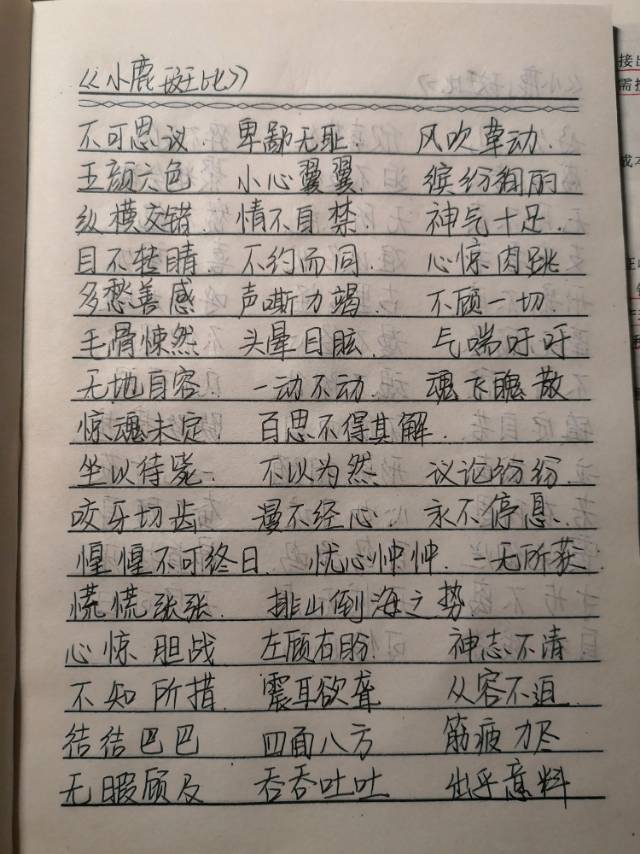 《小鹿斑比》
不可思议. 卑鄙无耻. 风吹草动.
五颜六色 小心翼翼. 缤纷绚丽
纵横交错. 情不自禁. 神气十足.
目不转睛. 不约而同. 心惊肉跳
多愁善感 声嘶力竭. 不顾一切.
毛骨悚然 头晕目眩. 气喘吁吁
无地自容. 一动不动. 魂飞魄散
惊魂未定. 百思不得其解.
坐以待毙. 不以为然. 议论纷纷.
咬牙切齿 漫不经心. 永不停息.
惶惶不可终日. 忧心忡忡. 一无所获.
慌慌张张. 排山倒海之势.
心惊胆战 左顾右盼. 神志不清
不知所措. 震耳欲聋 从容不迫.
结结巴巴 四面八方 筋疲力尽
无暇顾及 吞吞吐吐 出乎意料